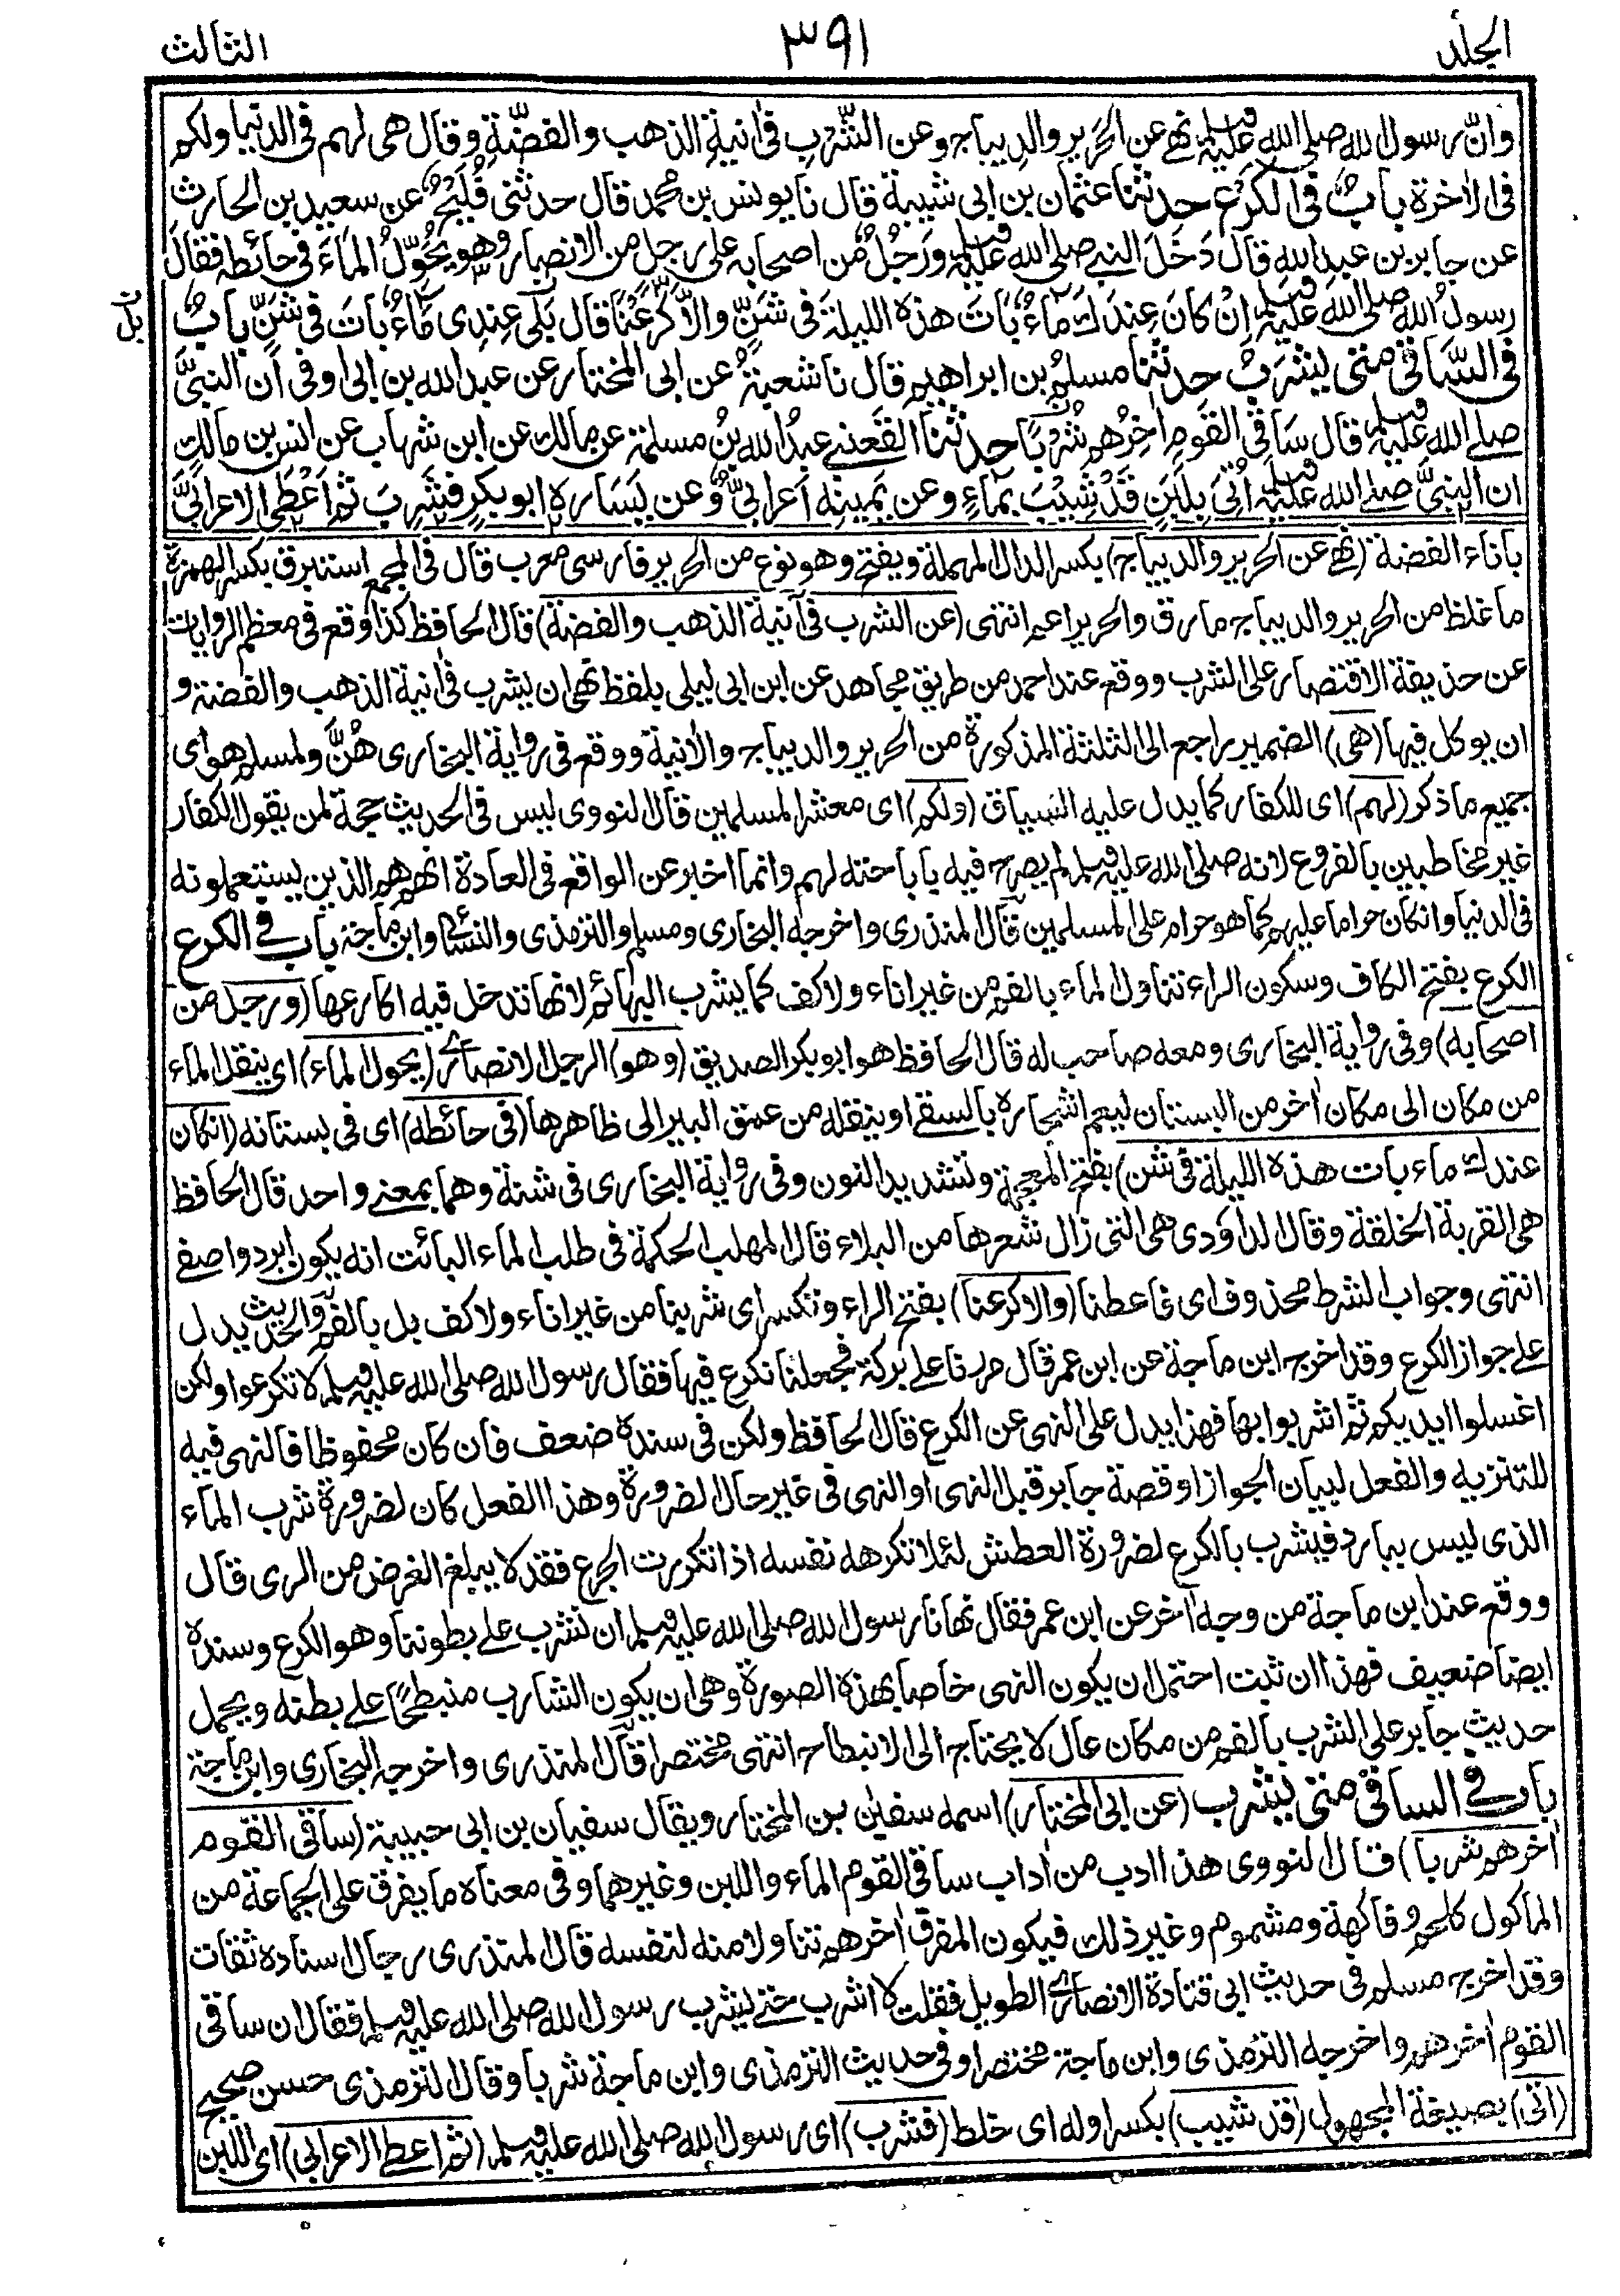 الجلد
٣٩١
الثالث
وانّ رسول الله صلى الله عليه وسلم نهى عن الحرير والديباج وعن الشُّرْبِ فى اٰنيةِ الذهب والفضّةِ وقال هى لهم فى الدنيا ولكم
فى الاٰخرة بابٌ فى الكَرْعِ حدثنا عثمان بن ابى شيبة قال نا يونس بن محمد قال حدثنى فُلَيْحٌ عن سعيد بن الحارث
عن جابر بن عبد الله قال دَخَلَ النبى صلى الله عليه وسلم ورَجُلٌ من اصحابه على رجل من الانصار وهو يُحَوِّلُ الماءَ فى حائطه فقال
رسولُ الله صلى الله عليه وسلم اِنْ كانَ عِندَكَ ماءٌ بَاتَ هذه الليلةَ فى شَنٍّ والاّ كَرَعْنَا قال بَلٰى عِندِى مَاءٌ بَاتَ فى شَنٍّ بابٌ
بل
فى السَّاقى متى يشرَبُ حدثنا مسلم بن ابراهيم قال نا شعبةُ عن ابى المختار عن عبد الله بن ابى اوفى اَن النبىَّ
صلى الله عليه وسلم قال سَاقِى القَومِ اٰخِرُهم شُرْبًا حدثنا القَعنَبى عبدُ الله بنُ مسلمة عن مالك عن ابن شهاب عن انس بن مالكٍ
ان النبىَّ صلى الله عليه وسلم اُتِىَ بِلَبَنٍ قَدْ شِيْبَ بِمَاءٍ وعن يَمِينِه اَعرابىٌّ وعن يَسَاره ابو بكرٍ فشَرِبَ ثم اَعْطَى الاعرابىَّ
باناء الفضة (نهى عن الحرير والديباج) بكسر الدال المهملة ويفتح وهو نوع من الحرير فارسى معرب قال فى المجمع استبرق بكسر الهمزة
ما غلظ من الحرير والديباج ما رق والحرير اعم انتهى (عن الشرب فى آنية الذهب والفضة) قال الحافظ كذا وقع فى معظم الروايات
عن حذيفة الاقتصار على الشرب ووقع عند احمد من طريق مجاهد عن ابن ابى ليلى بلفظ نهى ان يشرب فى اٰنية الذهب والفضة و
ان يوكل فيها (هى) الضمير راجع الى الثلثة المذكورة من الحرير والديباج والاٰنية ووقع فى رواية البخارى هُنَّ ولمسلم هو اى
جميع ما ذكر (لهم) اى للكفار كما يدل عليه السياق (ولكم) اى معشر المسلمين قال النووى ليس فى الحديث حجة لمن يقول الكفار
غير مخاطبين بالفروع لانه صلى الله عليه وسلم لم يصرح فيه باباحته لهم وانما اخبر عن الواقع فى العادة انهم هم الذين يستعملونه
فى الدنيا وانكان حراما عليهم كما هو حرام على المسلمين قال المنذرى واخرجه البخارى ومسلم والترمذى والنسائى وابن ماجة باب فى الكرع
الكرع بفتح الكاف وسكون الراء تناول الماء بالفم من غير اناء ولا كف كما يشرب البهائم لانها تدخل فيه اكارعها (ورجل من
اصحابه) وفى رواية البخارى ومعه صاحب له قال الحافظ هو ابو بكر الصديق (وهو) الرجل الانصارى (يحول الماء) اى ينقل الماء
من مكان الى مكان اٰخر من البستان ليعم اشجاره بالسقى او ينقله من عمق البير الى ظاهرها (فى حائطه) اى فى بستانه (انكان
عندك ماء بات هذه الليلة فى شن) بفتح المعجمة وتشديد النون وفى رواية البخارى فى شنة وهما بمعنى واحد قال الحافظ
هى القربة الخلقة وقال الداؤدى هى التى زال شعرها من البلاء قال المهلب الحكمة فى طلب الماء البائت انه يكون ابرد واصفى
انتهى وجواب الشرط محذوف اى فاعطنا (والا كرعنا) بفتح الراء وتكسر اى شربنا من غير اناء ولا كف بل بالفم والحديث يدل
على جواز الكرع وقد اخرج ابن ماجة عن ابن عمر قال مررنا على بركة فجعلنا نكرع فيها فقال رسول الله صلى الله عليه وسلم لا تكرعوا ولكن
اغسلوا ايديكم ثم اشربوا بها فهذا يدل على النهى عن الكرع قال الحافظ ولكن فى سنده ضعف فان كان محفوظا فالنهى فيه
للتنزيه والفعل لبيان الجواز او قصة جابر قبل النهى او النهى فى غير حال الضرورة وهذا الفعل كان لضرورة شرب الماء
الذى ليس ببارد فيشرب بالكرع لضرورة العطش لئلا تكرهه نفسه اذا تكررت الجرع فقد لا يبلغ الغرض من الرى قال
ووقع عند ابن ماجة من وجه آخر عن ابن عمر فقال نهانا رسول الله صلى الله عليه وسلم ان نشرب على بطوننا وهو الكرع وسنده
ايضا ضعيف فهذا ان ثبت احتمل ان يكون النهى خاصا بهذه الصورة وهى ان يكون الشارب منبطحًا على بطنه ويحمل
حديث جابر على الشرب بالفم من مكان عال لا يحتاج الى الانبطاح انتهى مختصرا قال المنذرى واخرجه البخارى وابن ماجة
باب فى الساقى متى يشرب (عن ابى المختار) اسمه سفين بن المختار ويقال سفيان بن ابى حبيبة (ساقى القوم
اٰخرهم شربا) قال النووى هذا ادب من اٰداب ساقى القوم الماء واللبن وغيرهما وفى معناه ما يفرق على الجماعة من
الماكول كلحم وفاكهة ومشموم وغير ذلك فيكون المفرق اٰخرهم تناولا منه لنفسه قال المنذرى رجال اسناده ثقات
وقد اخرج مسلم فى حديث ابى قتادة الانصارى الطويل فقلت لا اشرب حتى يشرب رسول الله صلى الله عليه وسلم فقال ان ساقى
القوم اٰخرهم واخرجه الترمذى وابن ماجة مختصرا وفى حديث الترمذى وابن ماجة شربا وقال الترمذى حسن صحيح
(اتى) بصيغة المجهول (قد شيب) بكسر اوله اى خلط (فشرب) اى رسول الله صلى الله عليه وسلم (ثم اعطى الاعرابى) اى اللبن